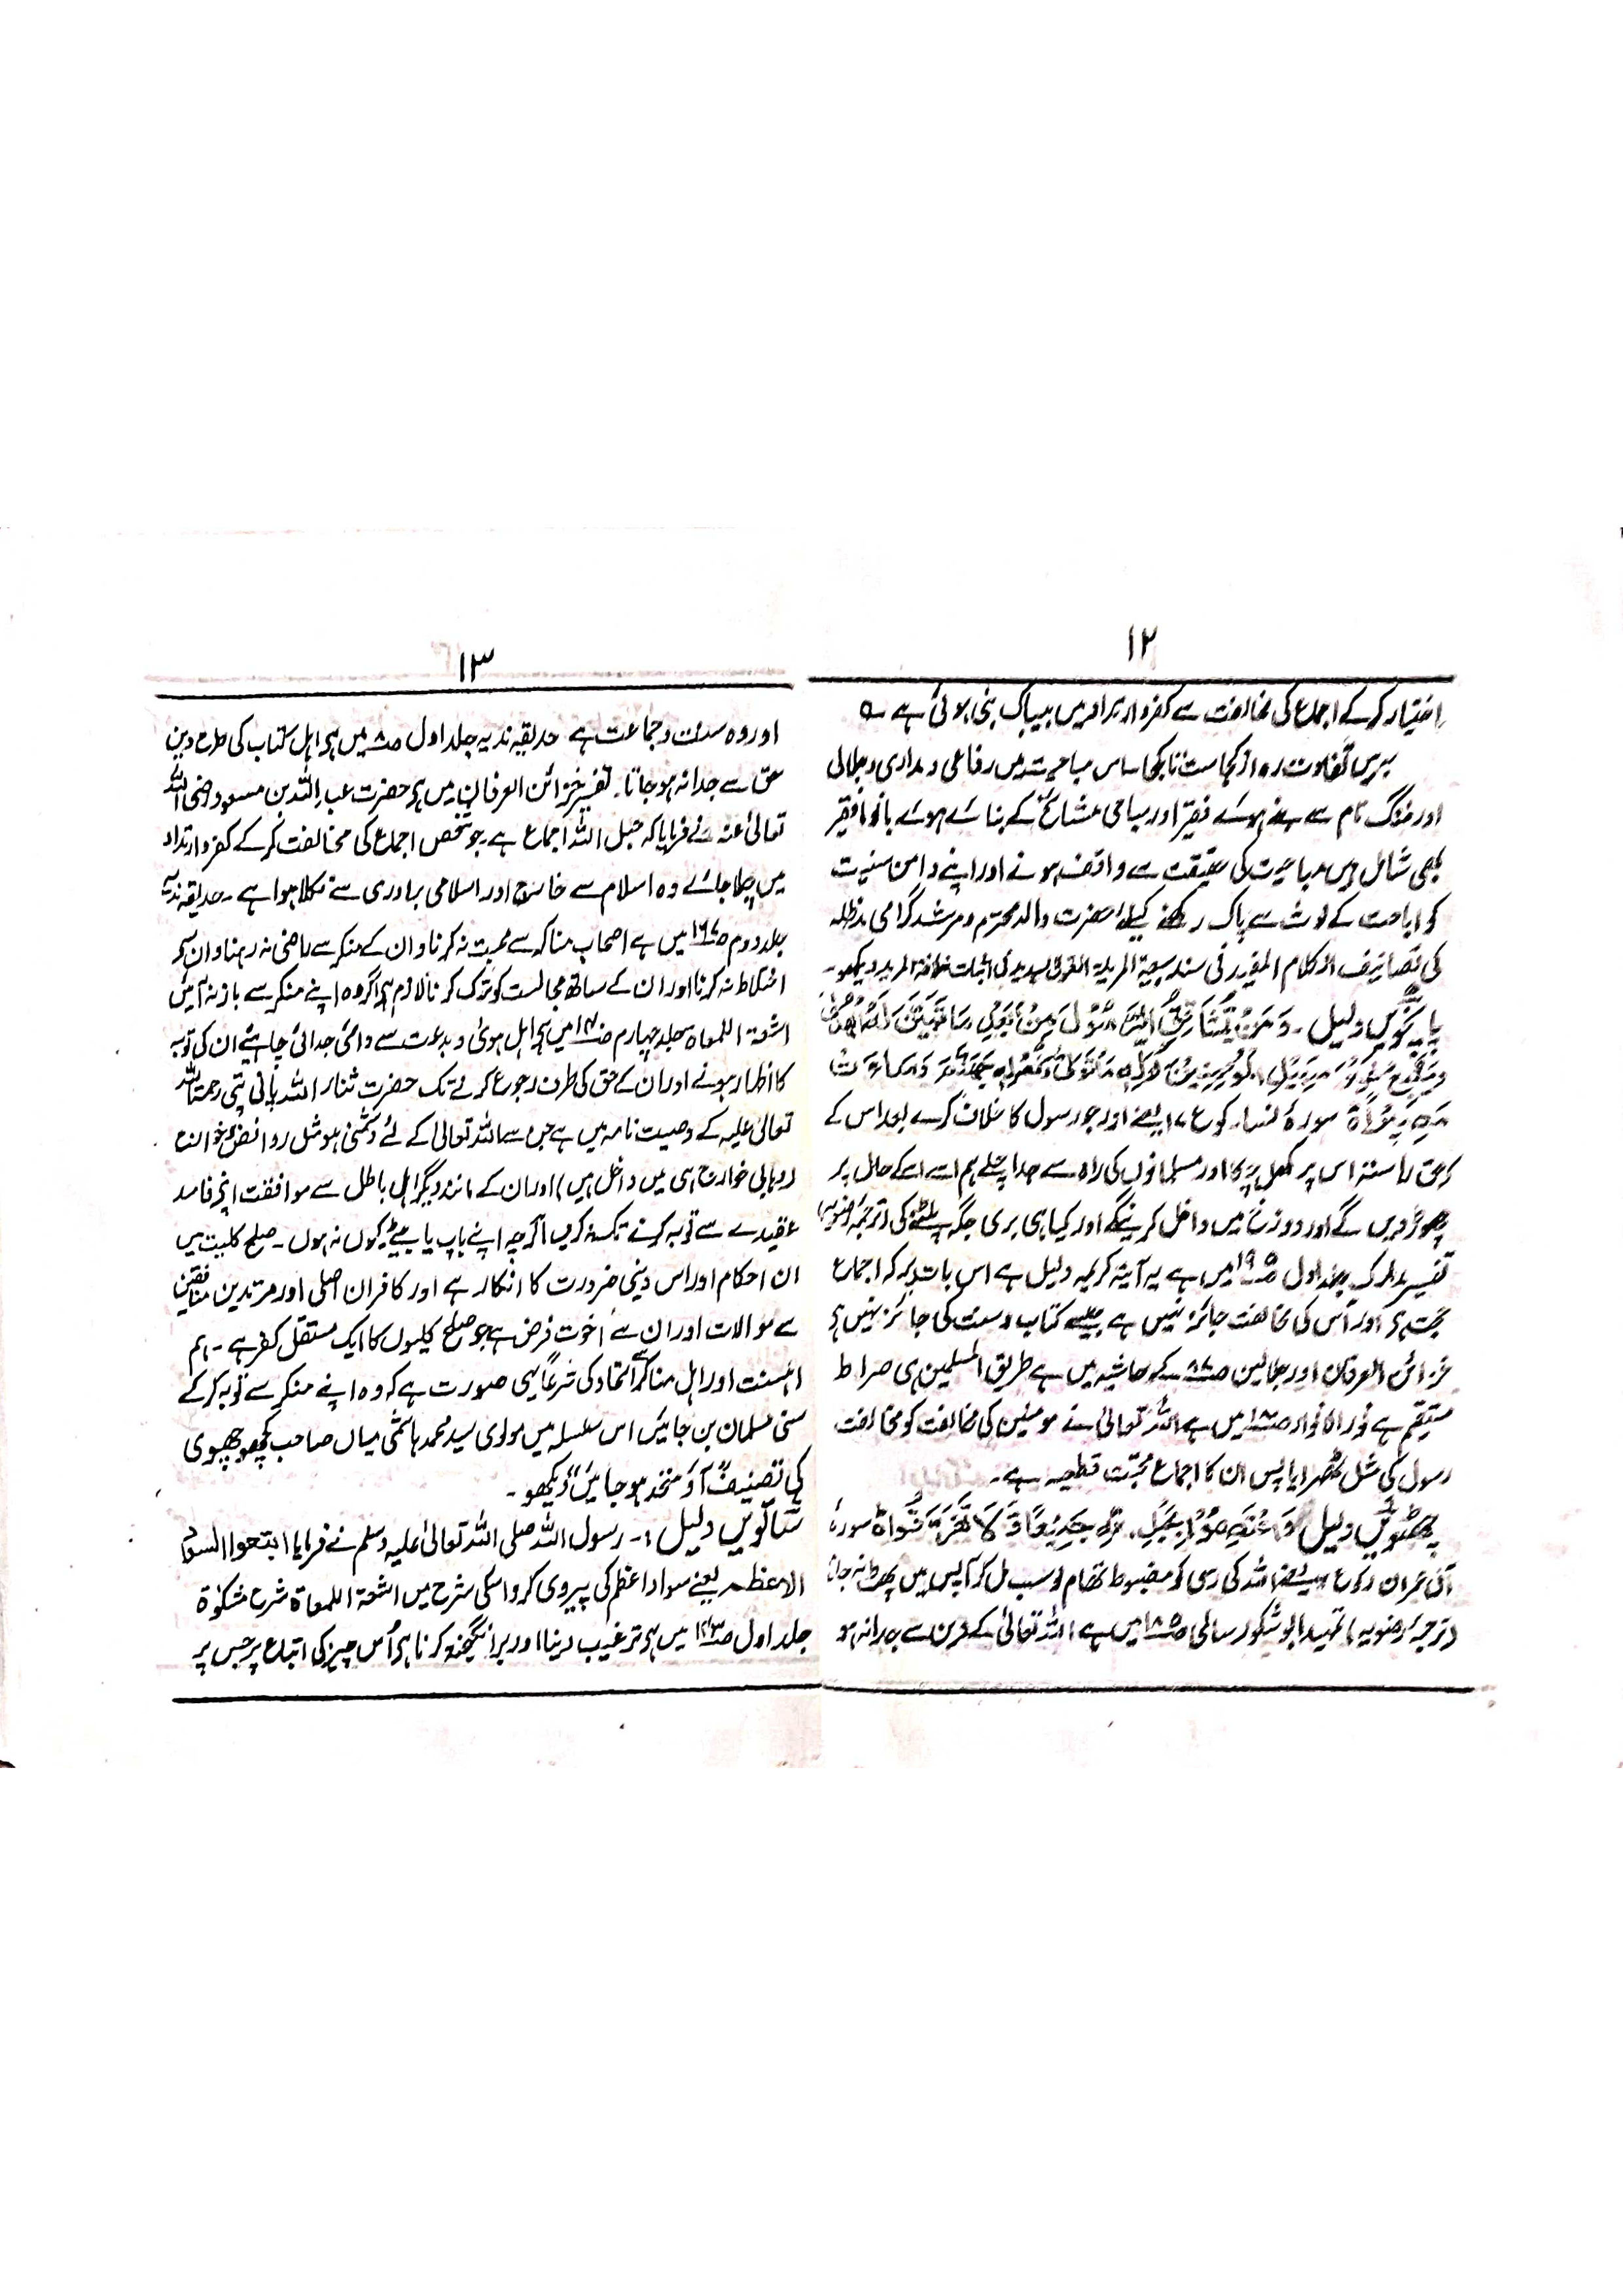 ۱۲
اختیار کرکے اجماع کی مخالفت سے کفر و ارتداد میں بیباک بنی ہوئی ہے
ببیں تفاوت رہ از کجاست تا بکجا اس مباحیت میں رفاعی و مداری و جلالی
اور ملنگ نام سے بنے ہوئے فقیر اور مباحی مشائخ کے بنائے ہوئے بانوا فقیر
بھی شامل ہیں مباحیت کی حقیقت سے واقف ہونے اور اپنے دامن سنیت
کو اباحت کے لوث سے پاک رکھنے کیلئے حضرت والد محترم و مرشد گرامی مدظلہ
کی تصانیف الکلام المفید فی سند بیعۃ المرید القول السدید فی اثبات خلافۃ المرید دیکھو۔
پانچویں دلیل ۔ وَمَنْ يُّشَاقِقِ الرَّسُوْلَ مِنْ بَعْدِ مَا تَبَيَّنَ لَهُ الْهُدٰى
وَيَتَّبِعْ غَيْرَ سَبِيْلِ الْمُؤْمِنِيْنَ نُوَلِّهٖ مَا تَوَلّٰى وَنُصْلِهٖ جَهَنَّمَ وَسَاءَتْ
مَصِيْرًا ۃ سورۂ نساء رکوع ۱۷ یعنے اور جو رسول کا خلاف کرے بعد اس کے
کہ حق راستہ اس پر کھل چکا اور مسلمانوں کی راہ سے جدا چلے ہم اسے اسکے حال پر
چھوڑ دیں گے اور دوزخ میں داخل کرینگے اور کیا ہی بری جگہ پلٹنے کی (ترجمہ رضویہ)
تفسیر مدارک جلد اول ص۱۹۵ میں ہے یہ آیت کریمہ دلیل ہے اس بات پر کہ اجماع
حجت ہے اور اس کی مخالفت جائز نہیں ہے جیسے کتاب و سنت کی جائز نہیں ہے
خزائن العرفان اور جلالین ص۸۷ کے حاشیہ میں ہے طریق المسلمین ہی صراط
مستقیم ہے نور الانوار میں ہے اللہ تعالیٰ نے مومنین کی مخالفت کو مخالفت
رسول کی مثل ٹھہرایا پس ان کا اجماع حجّت قطعیہ ہے۔
چھٹویں دلیل وَاعْتَصِمُوْا بِحَبْلِ اللّٰهِ جَمِيْعًا وَّلَا تَفَرَّقُوْا ۃ سورۂ
آل عمران رکوع یعنے اللہ کی رسی کو مضبوط تھام لو سب مل کر آپس میں پھٹ نہ جانا
(ترجمۂ رضویہ) تمہید ابوشکور سالمی میں ہے اللہ تعالیٰ کے دین سے جدا نہ ہو
۱۳
اور وہ سنت و جماعت ہے حدیقہ ندیہ جلد اول میں ہے اہل کتاب کی طرح دین
حق سے جدا نہ ہو جانا۔ تفسیر خزائن العرفان میں ہے حضرت عبداللہ بن مسعود رضی اللہ
تعالیٰ عنہ نے فرمایا کہ حبل اللہ اجماع ہے۔ جو شخص اجماع کی مخالفت کرکے کفر و ارتداد
میں چلا جائے وہ اسلام سے خارج اور اسلامی برادری سے نکلا ہوا ہے۔ حدیقہ ندیہ
جلد دوم میں ہے اصحاب مناکر سے محبت نہ کرنا و ان کے منکر سے راضی نہ رہنا و ان سے
اختلاط نہ کرنا اور ان کے ساتھ مجالست کو ترک کرنا لازم ہے اگر وہ اپنے منکر سے باز نہ آئیں
اشعۃ اللمعاۃ جلد چہارم میں ہے اہل ہویٰ و بدعت سے دائمی جدائی چاہئے ان کی توبہ
کا اظہار ہونے اور ان کے حق کی طرف رجوع کرنے تک حضرت ثناء اللہ پانی پتی رحمۃ اللہ
تعالیٰ علیہ کے وصیت نامہ میں ہے جس سے اللہ تعالیٰ کے لئے دشمنی ہو مثل روافض و خوارج
(وہابی خوارج ہی میں داخل ہیں) اور ان کے مانند دیگر اہل باطل سے موافقت انکے فاسد
عقیدے سے توبہ کرنے تک نہ کریں اگرچہ اپنے باپ یا بیٹے کیوں نہ ہوں۔ صلح کلیت میں
ان احکام اور اس دینی ضرورت کا انکار ہے اور کافران اصلی اور مرتدین منافقین
سے موالات اور ان سے اخوت فرض ہے جو صلح کلیوں کا ایک مستقل کفر ہے ۔ ہم
اہلسنت اور اہل مناکر سے اتحاد کی شرعاً یہی صورت ہے کہ وہ اپنے منکر سے توبہ کرکے
سنی مسلمان بن جائیں اس سلسلہ میں مولوی سید محمد ہاشمی میاں صاحب کچھوچھوی
کی تصنیف "آؤ متحد ہو جائیں" دیکھو ۔
ساتویں دلیل :۔ رسول اللہ صلی اللہ تعالیٰ علیہ وسلم نے فرمایا اتبعوا السواد
الاعظم یعنے سواد اعظم کی پیروی کرو اسکی شرح میں اشعۃ اللمعاۃ شرح مشکوٰۃ
جلد اول میں ہے ترغیب دینا اور برانگیختہ کرنا ہے اُس چیز کی اتباع پر جس پر